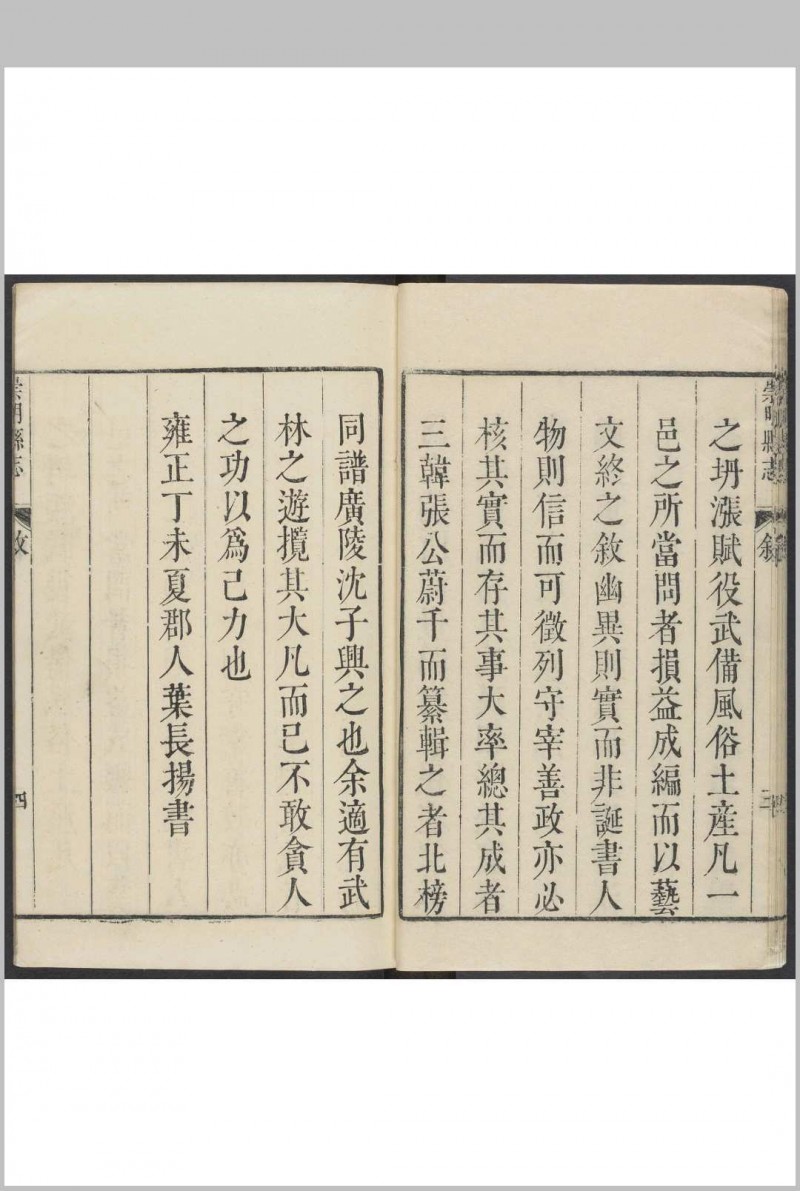 崇明縣志
敘
三
之坍漲賦役武備風俗土產凡一
邑之所當問者損益成編而以藝
文終之敘幽異則實而非誕書人
物則信而可徵列守宰善政亦必
核其實而存其事大率總其成者
三韓張公蔚千而纂輯之者北榜
同譜廣陵沈子興之也余適有武
林之遊攬其大凡而已不敢貪人
之功以為己力也
雍正丁未夏郡人葉長揚書
崇明縣志
敘
四